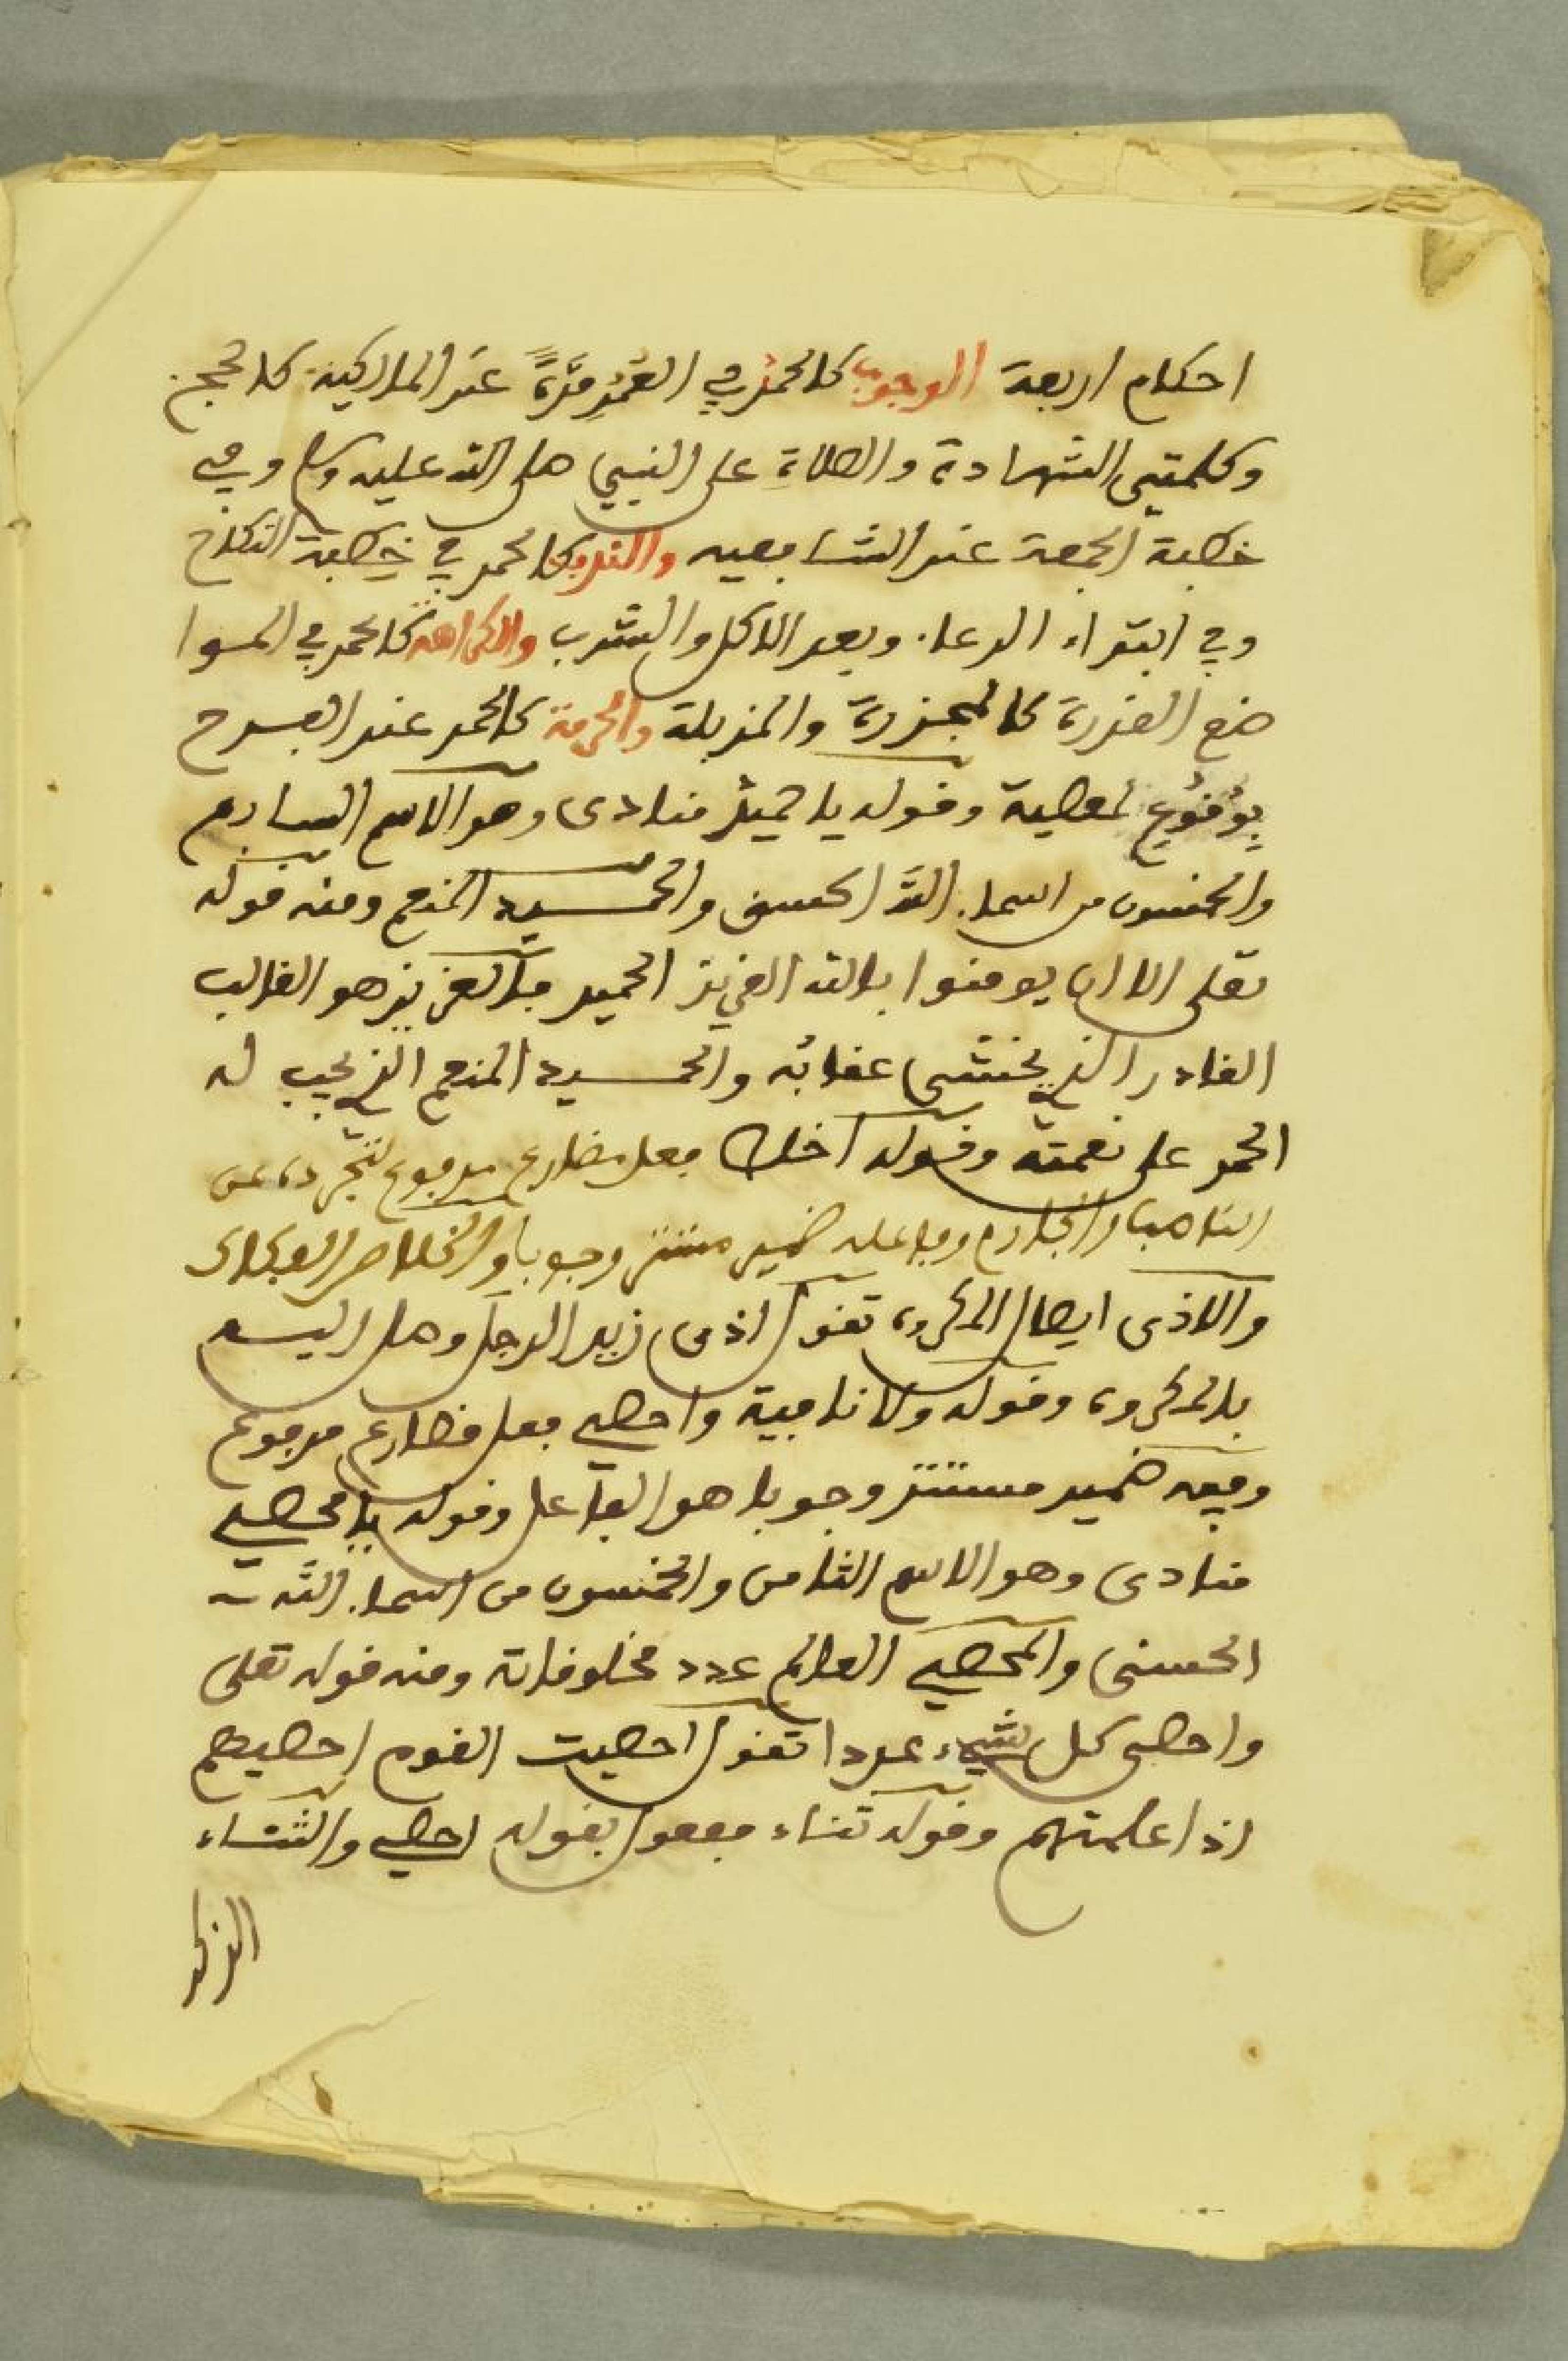 احكام اربعة الوجوب كالحمد في العُمُرِ مَرَّةً عند المالكية كالحج
وكلمتي الشهادة والصلاة على النبي صلى الله عليه وسلم وفي
خطبة الجمعة عند الشافعيه والندب كالحمد في خِطبة النكاح
وفي ابتداء الدعاء وبعد الاكل والشرب والكراهه كالحمد في الموا
ضع القذرة كالمجزرة والمزبلة والحرمة كالحمد عند الفرح
بِوُقُوعِ لمعصية وقوله يا حميدُ منادى وهو الاسم السابع
والخمسون من اسماء الله الحسنى والحميد المنعم ومنه قوله
تعلى الا ان يومنوا بالله العزيز الحميد فالعزيز هو الغالب
القادر الذي يخشى عقابُه والحميد المنعم الذي يجب له
الحمد على نعمته وقوله فعل مضارع مرفوع لتجرده عن
الناصب والجازم وفاعله ضمير مستتر وجوبا
والاذى ايصال المكروه تقول اذى زيد الرجل وصل اليه
بالمكروه وقوله ولا نافية واحصي فعل مضارع مرفوع
وفيه ضمير مستتر وجوبا هو الفاعل وقوله يا محصي
منادى وهو الاسم الثامن والخمسون من اسماء الله
الحسنى والمحصي العالم عدد مخلوقاته ومنه قوله تعلى
واحصى كل شيء عددا تقول احصيت القوم احصيهم
اذا علمتهم وقوله ثناء مفعول بقوله احصي والثناء
الذكر